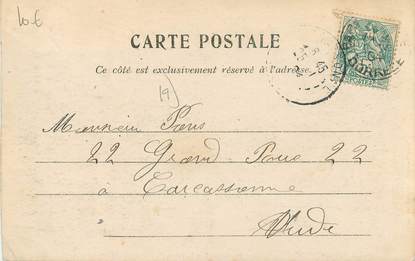 10 €
CARTE POSTALE
Ce côté est exclusivement réservé à l'adresse
(9)
Monsieur Pons
22 Grand-Rue 22
à Carcassonne
Aude